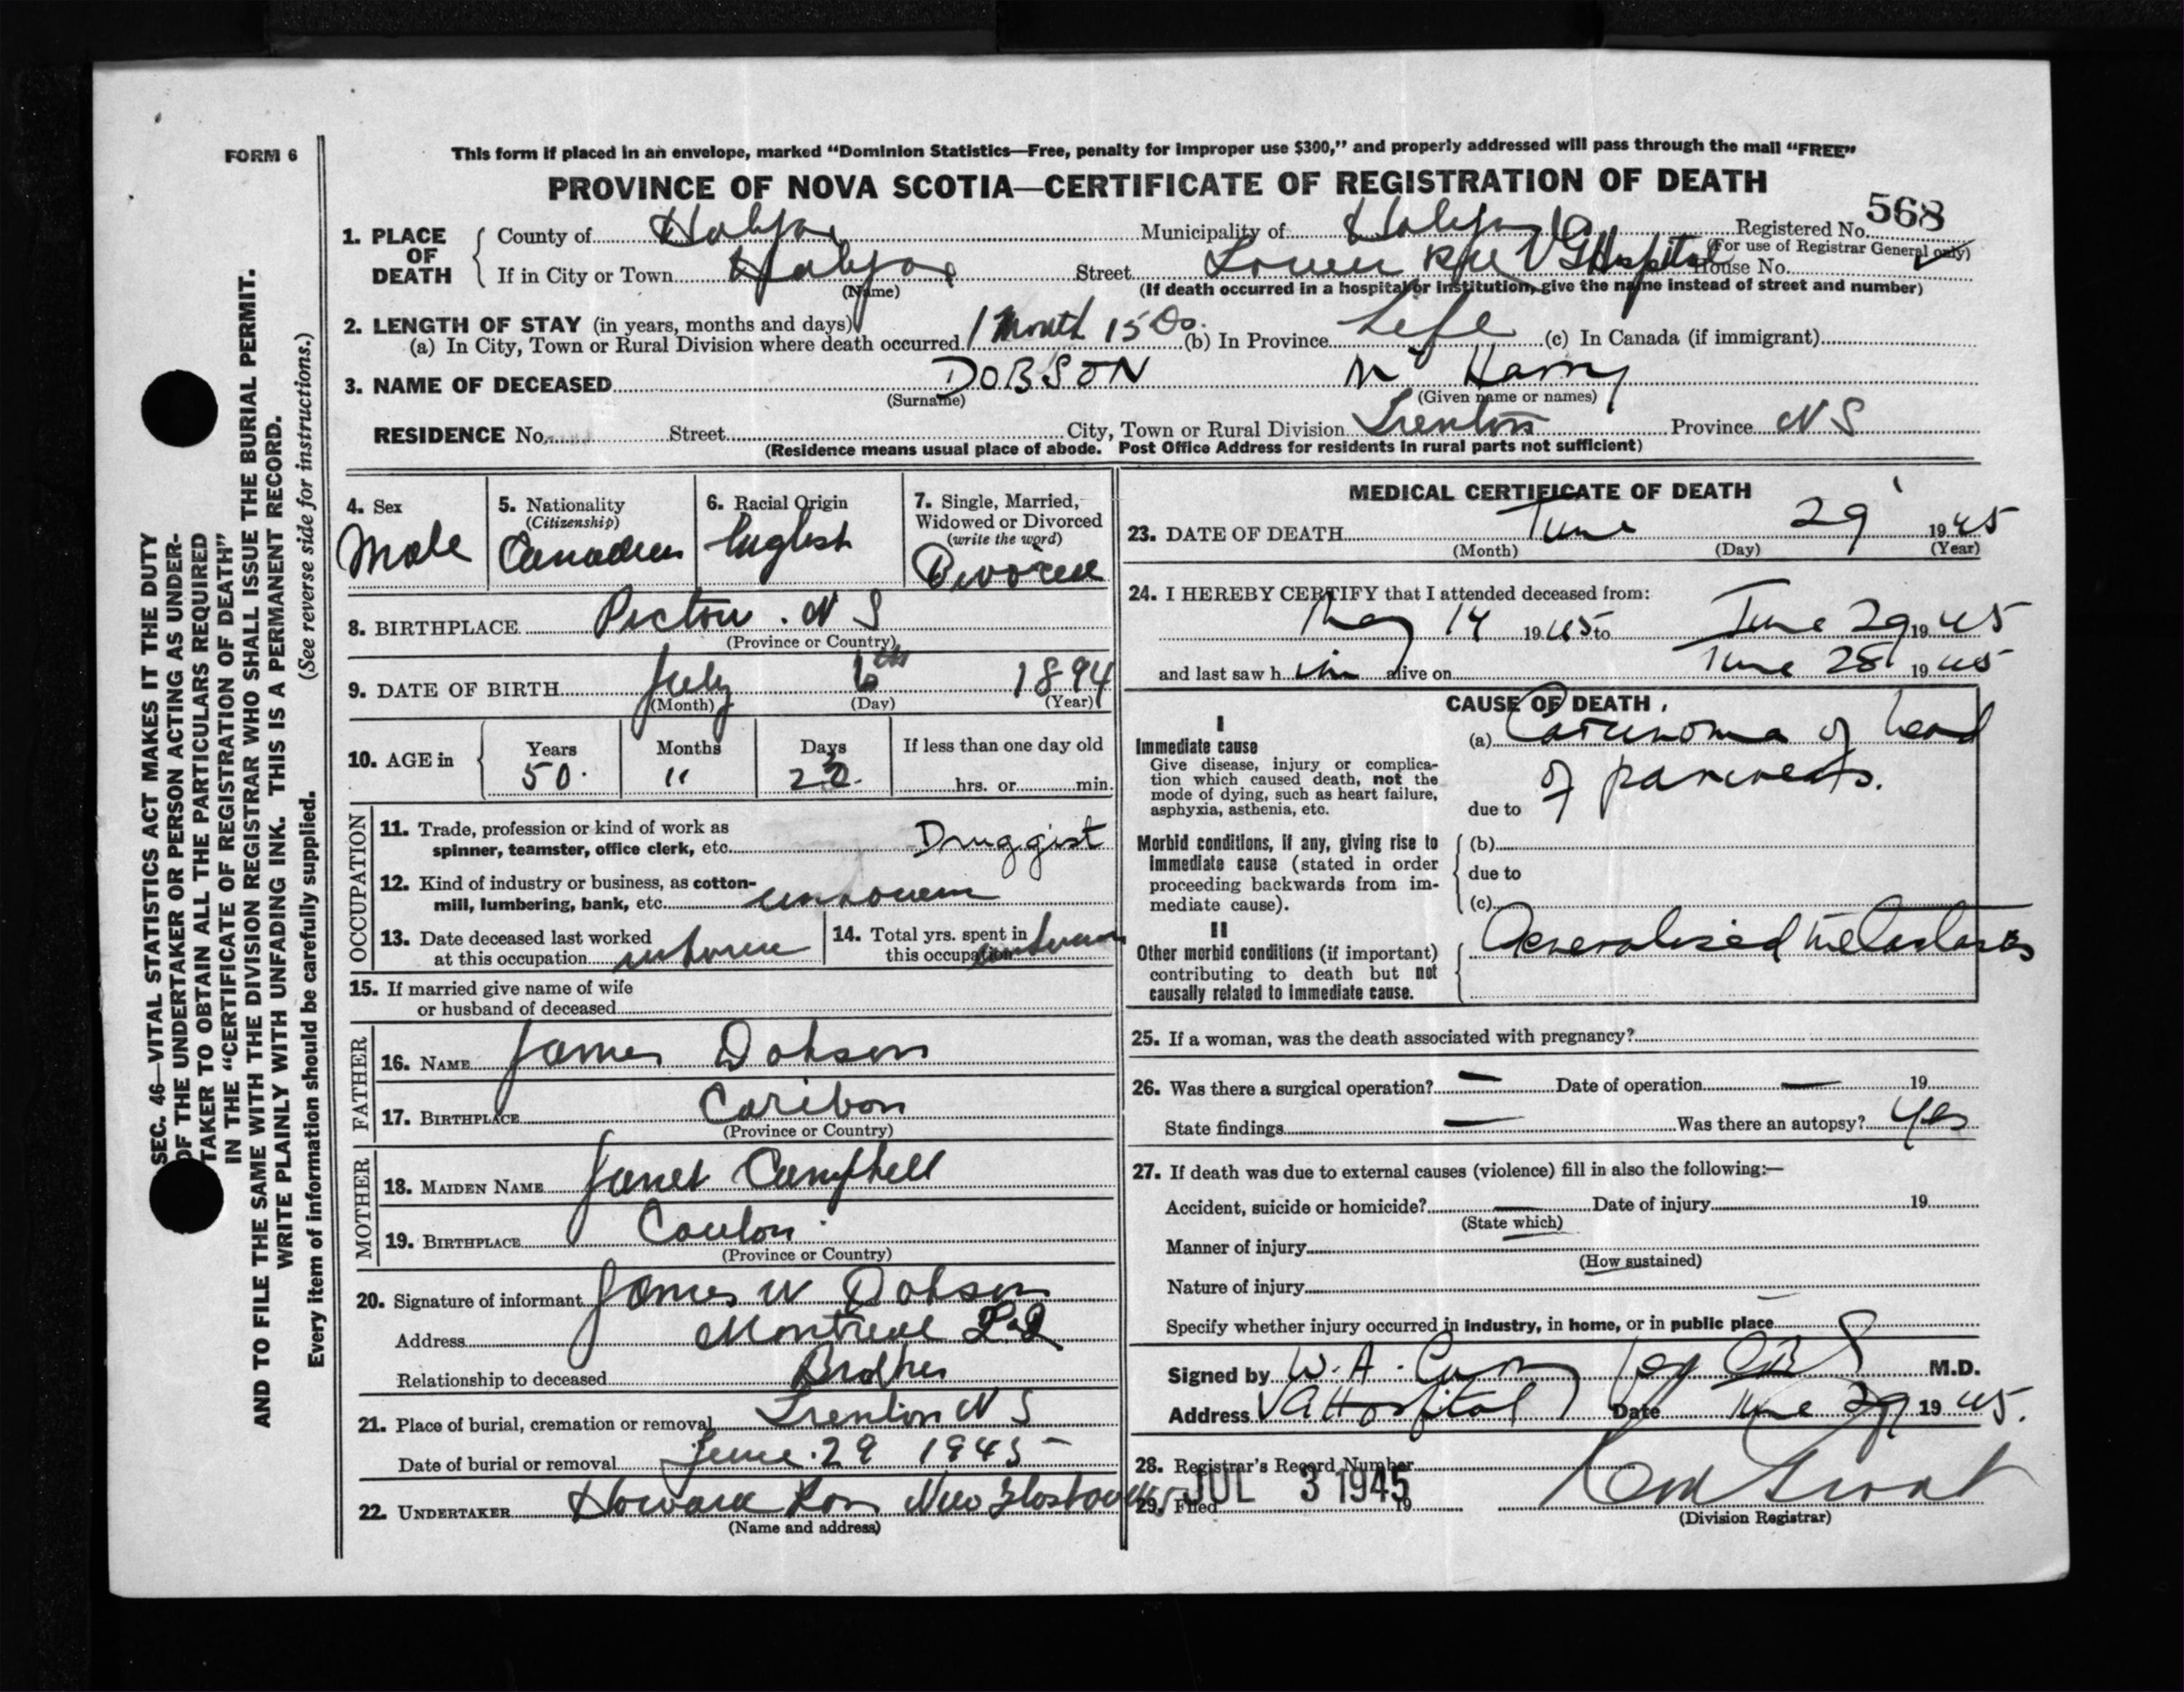 FORM 6
This form if placed in an envelope, marked “Dominion Statistics—Free, penalty for improper use $300,” and properly addressed will pass through the mail “FREE”
PROVINCE OF NOVA SCOTIA—CERTIFICATE OF REGISTRATION OF DEATH
568
1. PLACE OF DEATH
County of Halifax Municipality of Halifax Registered No.
(For use of Registrar General only)
If in City or Town Halifax Street VG Hospital House No.
(Name)
(If death occurred in a hospital or institution, give the name instead of street and number)
2. LENGTH OF STAY (in years, months and days)
(a) In City, Town or Rural Division where death occurred 1 Month 15 Ds. (b) In Province Life (c) In Canada (if immigrant)
3. NAME OF DECEASED DOBSON Harry
(Surname) (Given name or names)
RESIDENCE No. Street City, Town or Rural Division Trenton Province N S
(Residence means usual place of abode. Post Office Address for residents in rural parts not sufficient)
4. Sex
Male
5. Nationality
(Citizenship)
Canadian
6. Racial Origin
English
7. Single, Married,
Widowed or Divorced
(write the word)
Divorced
8. BIRTHPLACE Pictou . N S
(Province or Country)
9. DATE OF BIRTH July 6th 1894
(Month) (Day) (Year)
10. AGE in
Years Months Days If less than one day old
50. 11 hrs. or min.
OCCUPATION
11. Trade, profession or kind of work as
spinner, teamster, office clerk, etc. Druggist
12. Kind of industry or business, as cotton-
mill, lumbering, bank, etc. unknown
13. Date deceased last worked
at this occupation unknown
14. Total yrs. spent in
this occupation unknown
15. If married give name of wife
or husband of deceased
FATHER
16. NAME James Dobson
17. BIRTHPLACE Caribou
(Province or Country)
MOTHER
18. MAIDEN NAME Janet Campbell
19. BIRTHPLACE
(Province or Country)
20. Signature of informant James W Dobson
Address Montreal
Relationship to deceased Brother
21. Place of burial, cremation or removal Trenton N S
Date of burial or removal June 29 1945
22. UNDERTAKER Howard Ross New Glasgow
(Name and address)
MEDICAL CERTIFICATE OF DEATH
23. DATE OF DEATH June 29 1945
(Month) (Day) (Year)
24. I HEREBY CERTIFY that I attended deceased from:
May 14 1945 to June 29 1945
and last saw h im alive on June 28 1945
CAUSE OF DEATH
I
Immediate cause
Give disease, injury or complica-
tion which caused death, not the
mode of dying, such as heart failure,
asphyxia, asthenia, etc.
(a) Carcinoma of head
of pancreas.
due to
Morbid conditions, if any, giving rise to
immediate cause (stated in order
proceeding backwards from im-
mediate cause).
(b)
due to
(c)
II
Other morbid conditions (if important)
contributing to death but not
causally related to immediate cause.
Generalized metastases
25. If a woman, was the death associated with pregnancy?
26. Was there a surgical operation? — Date of operation — 19
State findings — Was there an autopsy? Yes
27. If death was due to external causes (violence) fill in also the following:—
Accident, suicide or homicide? — Date of injury 19
(State which)
Manner of injury
(How sustained)
Nature of injury
Specify whether injury occurred in industry, in home, or in public place
Signed by W. A. M.D.
Address VG Hospital Date June 29 1945.
28. Registrar's Record Number
29. Filed JUL 3 1945 19
(Division Registrar)
SEC. 46—VITAL STATISTICS ACT MAKES IT THE DUTY
OF THE UNDERTAKER OR PERSON ACTING AS UNDER-
TAKER TO OBTAIN ALL THE PARTICULARS REQUIRED
IN THE “CERTIFICATE OF REGISTRATION OF DEATH”
AND TO FILE THE SAME WITH THE DIVISION REGISTRAR WHO SHALL ISSUE THE BURIAL PERMIT.
WRITE PLAINLY WITH UNFADING INK. THIS IS A PERMANENT RECORD.
Every item of information should be carefully supplied. (See reverse side for instructions.)